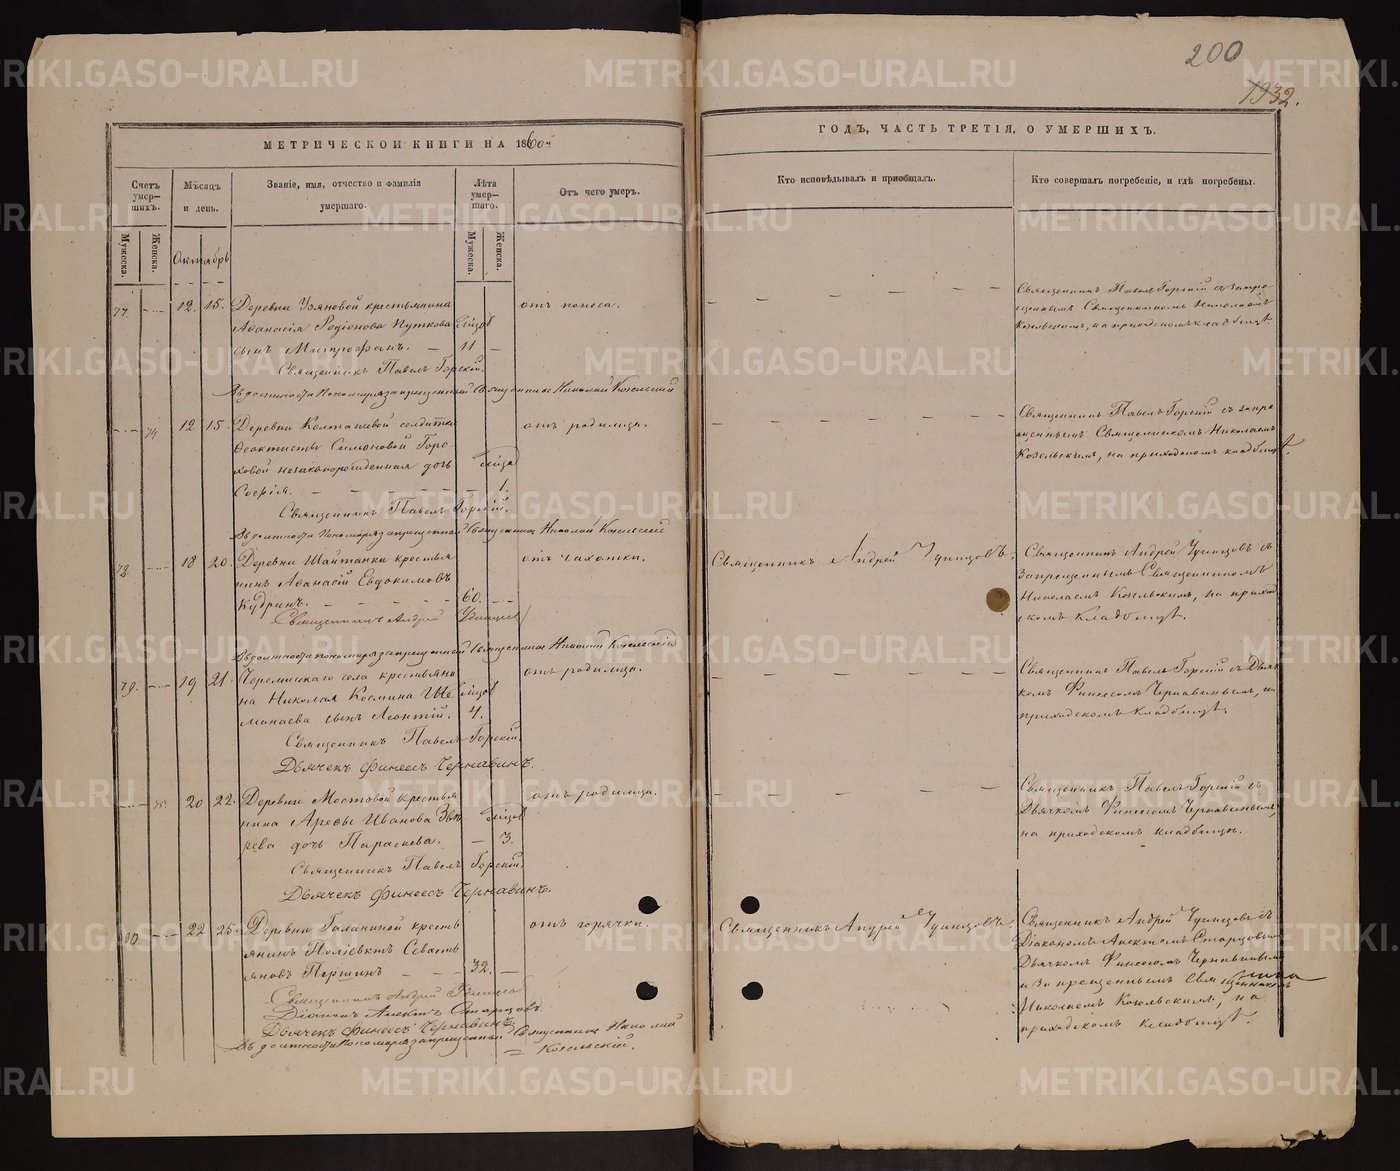 200
1932.
МЕТРИЧЕСКОЙ КНИГИ НА 1860й
ГОДЪ, ЧАСТЬ ТРЕТІЯ, О УМЕРШИХЪ.
Счетъ умер-шихъ.
Мужеска.
Женска.
Мѣсяцъ и день.
Званіе, имя, отчество и фамилія умершаго.
Лѣта умер-шаго.
Мужеска.
Женска.
Отъ чего умеръ.
Кто исповѣдывалъ и пріобщалъ.
Кто совершалъ погребеніе, и гдѣ погребены.
Октябрь
77. 12. 15. Деревни Узяновой крестьянина
Аѳанасія Родіонова Путкова
сынъ Митрофанъ. — 11 —
отъ поноса.
Священникъ Павелъ Горскій.
Въ должности Пономаря запрещенный Священникъ Николай Козельскій
Священникъ Павелъ Горскій съ запре-
щеннымъ Священникомъ Николаемъ
Козельскимъ, на приходскомъ кладбищѣ.
74 12 15. Деревни Колташевой солдатки
Ѳеоктисты Симоновой Горо-
ховой незаконорожденная дочь
Софія. 1.
отъ родимца.
Священникъ Павелъ Горскій.
Въ должности Пономаря запрещенный Священникъ Николай Козельскій
Священникъ Павелъ Горскій съ запре
щеннымъ Священникомъ Николаемъ
Козельскимъ, на приходскомъ кладбищѣ.
78. 18 20. Деревни Шайтанки крестья
нинъ Аѳанасій Евдокимовъ
Кудринъ. 60.
отъ чахотки.
Священникъ Андрей Удинцовъ
Въ должности пономаря запрещенный Священникъ Николай Козельскій
Священникъ Андрей Удинцовъ.
Священникъ Андрей Удинцовъ съ
запрещеннымъ Священникомъ
Николаемъ Козельскимъ, на приход
скомъ кладбищѣ.
79. 19 21. Черемисскаго села крестьяни
на Николая Космина Ше
манаева сынъ Леонтій. 4.
отъ родимца.
Священникъ Павелъ Горскій.
Дьячекъ Финеесъ Чернавинъ.
Священникъ Павелъ Горскій съ Дьяч
комъ Финеесомъ Чернавинымъ, на
приходскомъ кладбищѣ.
75. 20 22. Деревни Мостовой крестья
нина Арефы Иванова Звѣ
рева дочь Параскева. — 3.
отъ родимца.
Священникъ Павелъ Горскій.
Дьячекъ Финеесъ Чернавинъ.
Священникъ Павелъ Горскій съ
Дьячкомъ Финеесомъ Чернавинымъ,
на приходскомъ кладбищѣ.
80. 22 25. Деревни Галаниной кресть
янинъ Поліевктъ Севасть
яновъ Першинъ 32. —
отъ горячки.
Священникъ Андрей Удинцовъ
Діаконъ Алектъ Старцовъ.
Дьячекъ Финеесъ Чернавинъ
Въ должности Пономаря запрещенный Священникъ Николай
Козельскій.
Священникъ Андрей Удинцовъ.
Священникъ Андрей Удинцовъ съ
Діакономъ Алектомъ Старцовымъ
Дьячкомъ Финеесомъ Чернавинымъ
и запрещеннымъ Священникомъ
Николаемъ Козельскимъ, на
приходскомъ кладбищѣ.
METRIKI.GASO-URAL.RU